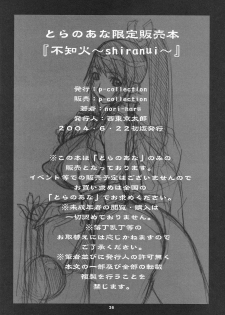 とらのあな限定販売本
『不知火～shiranui～』
発行：p-collection
販売：p-collection
著者：nori-haru
発行人：西東京太郎
2004・6・22初版発行
※この本は「とらのあな」のみの
販売となっております。
イベント等での販売予定はございませんので
お買い求めは全国の
「とらのあな」でお求めください。
※未成年者の閲覧・購入は
一切認めておりません。
※落丁乱丁等の
お取替えには応じかねますので
ご了承ください。
※筆者並びに発行人の許可無く
本文の一部及び全部の転載
複製を行うことを
禁じます。